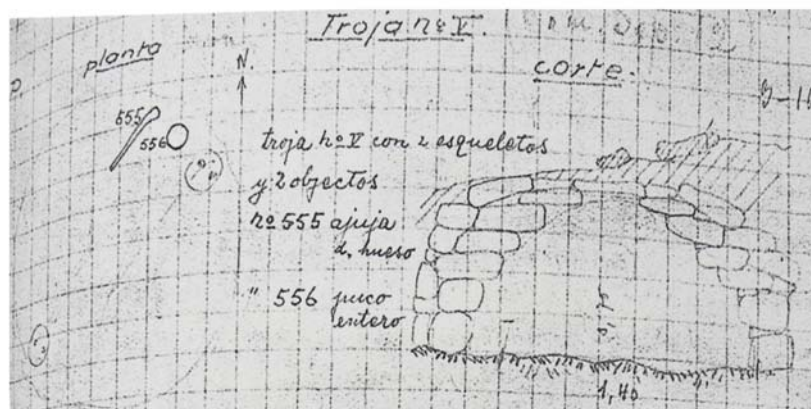 Troja nº V.
planta
N.
corte.
555
556
troja nº V con 2 esqueletos
y 2 objectos
nº 555 ajuja
d. hueso
" 556 puco
entero
1,40